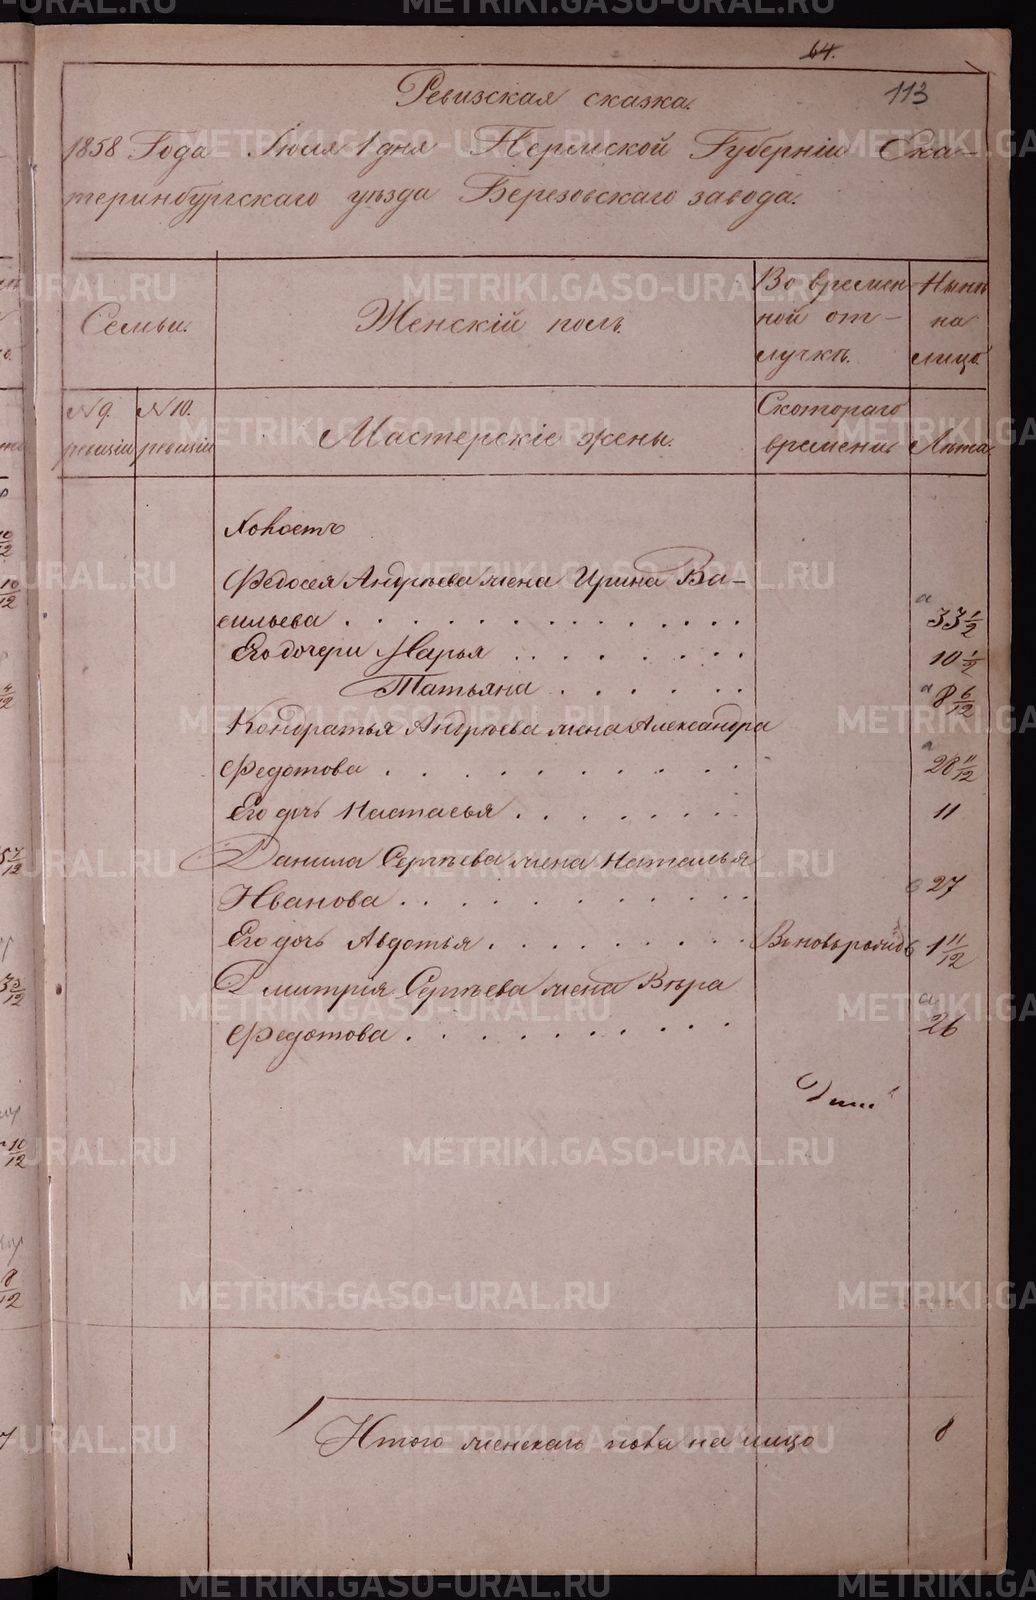 64.
113
Ревизская сказка.
1858 Года Іюля 1 дня Пермской Губерніи Ека-
теринбургскаго уѣзда Березовскаго завода.
Семьи.
Женскій полъ.
Во времен-
ной от-
лучкѣ.
Нынѣ
на
лицо.
N 9.
ревизіи
N 10.
ревизіи
Мастерскіе жены.
Скотораго
времени
Лѣта.
Федосея Андрѣева жена Ирина Ва-
сильева 33 1/2
Его дочери Марья 10 1/2
Татьяна 8 6/12
Кондратья Андрѣева жена Александра
Федотова 28 11/12
Его дочь Настасья 11
Данила Сергѣева жена Наталья
Иванова 27
Его дочь Авдотья Вновьрожд 1 11/12
Дмитрія Сергѣева жена Вѣра
Федотова 26
Итого женскаго пола на лицо 8
METRIKI.GASO-URAL.RU